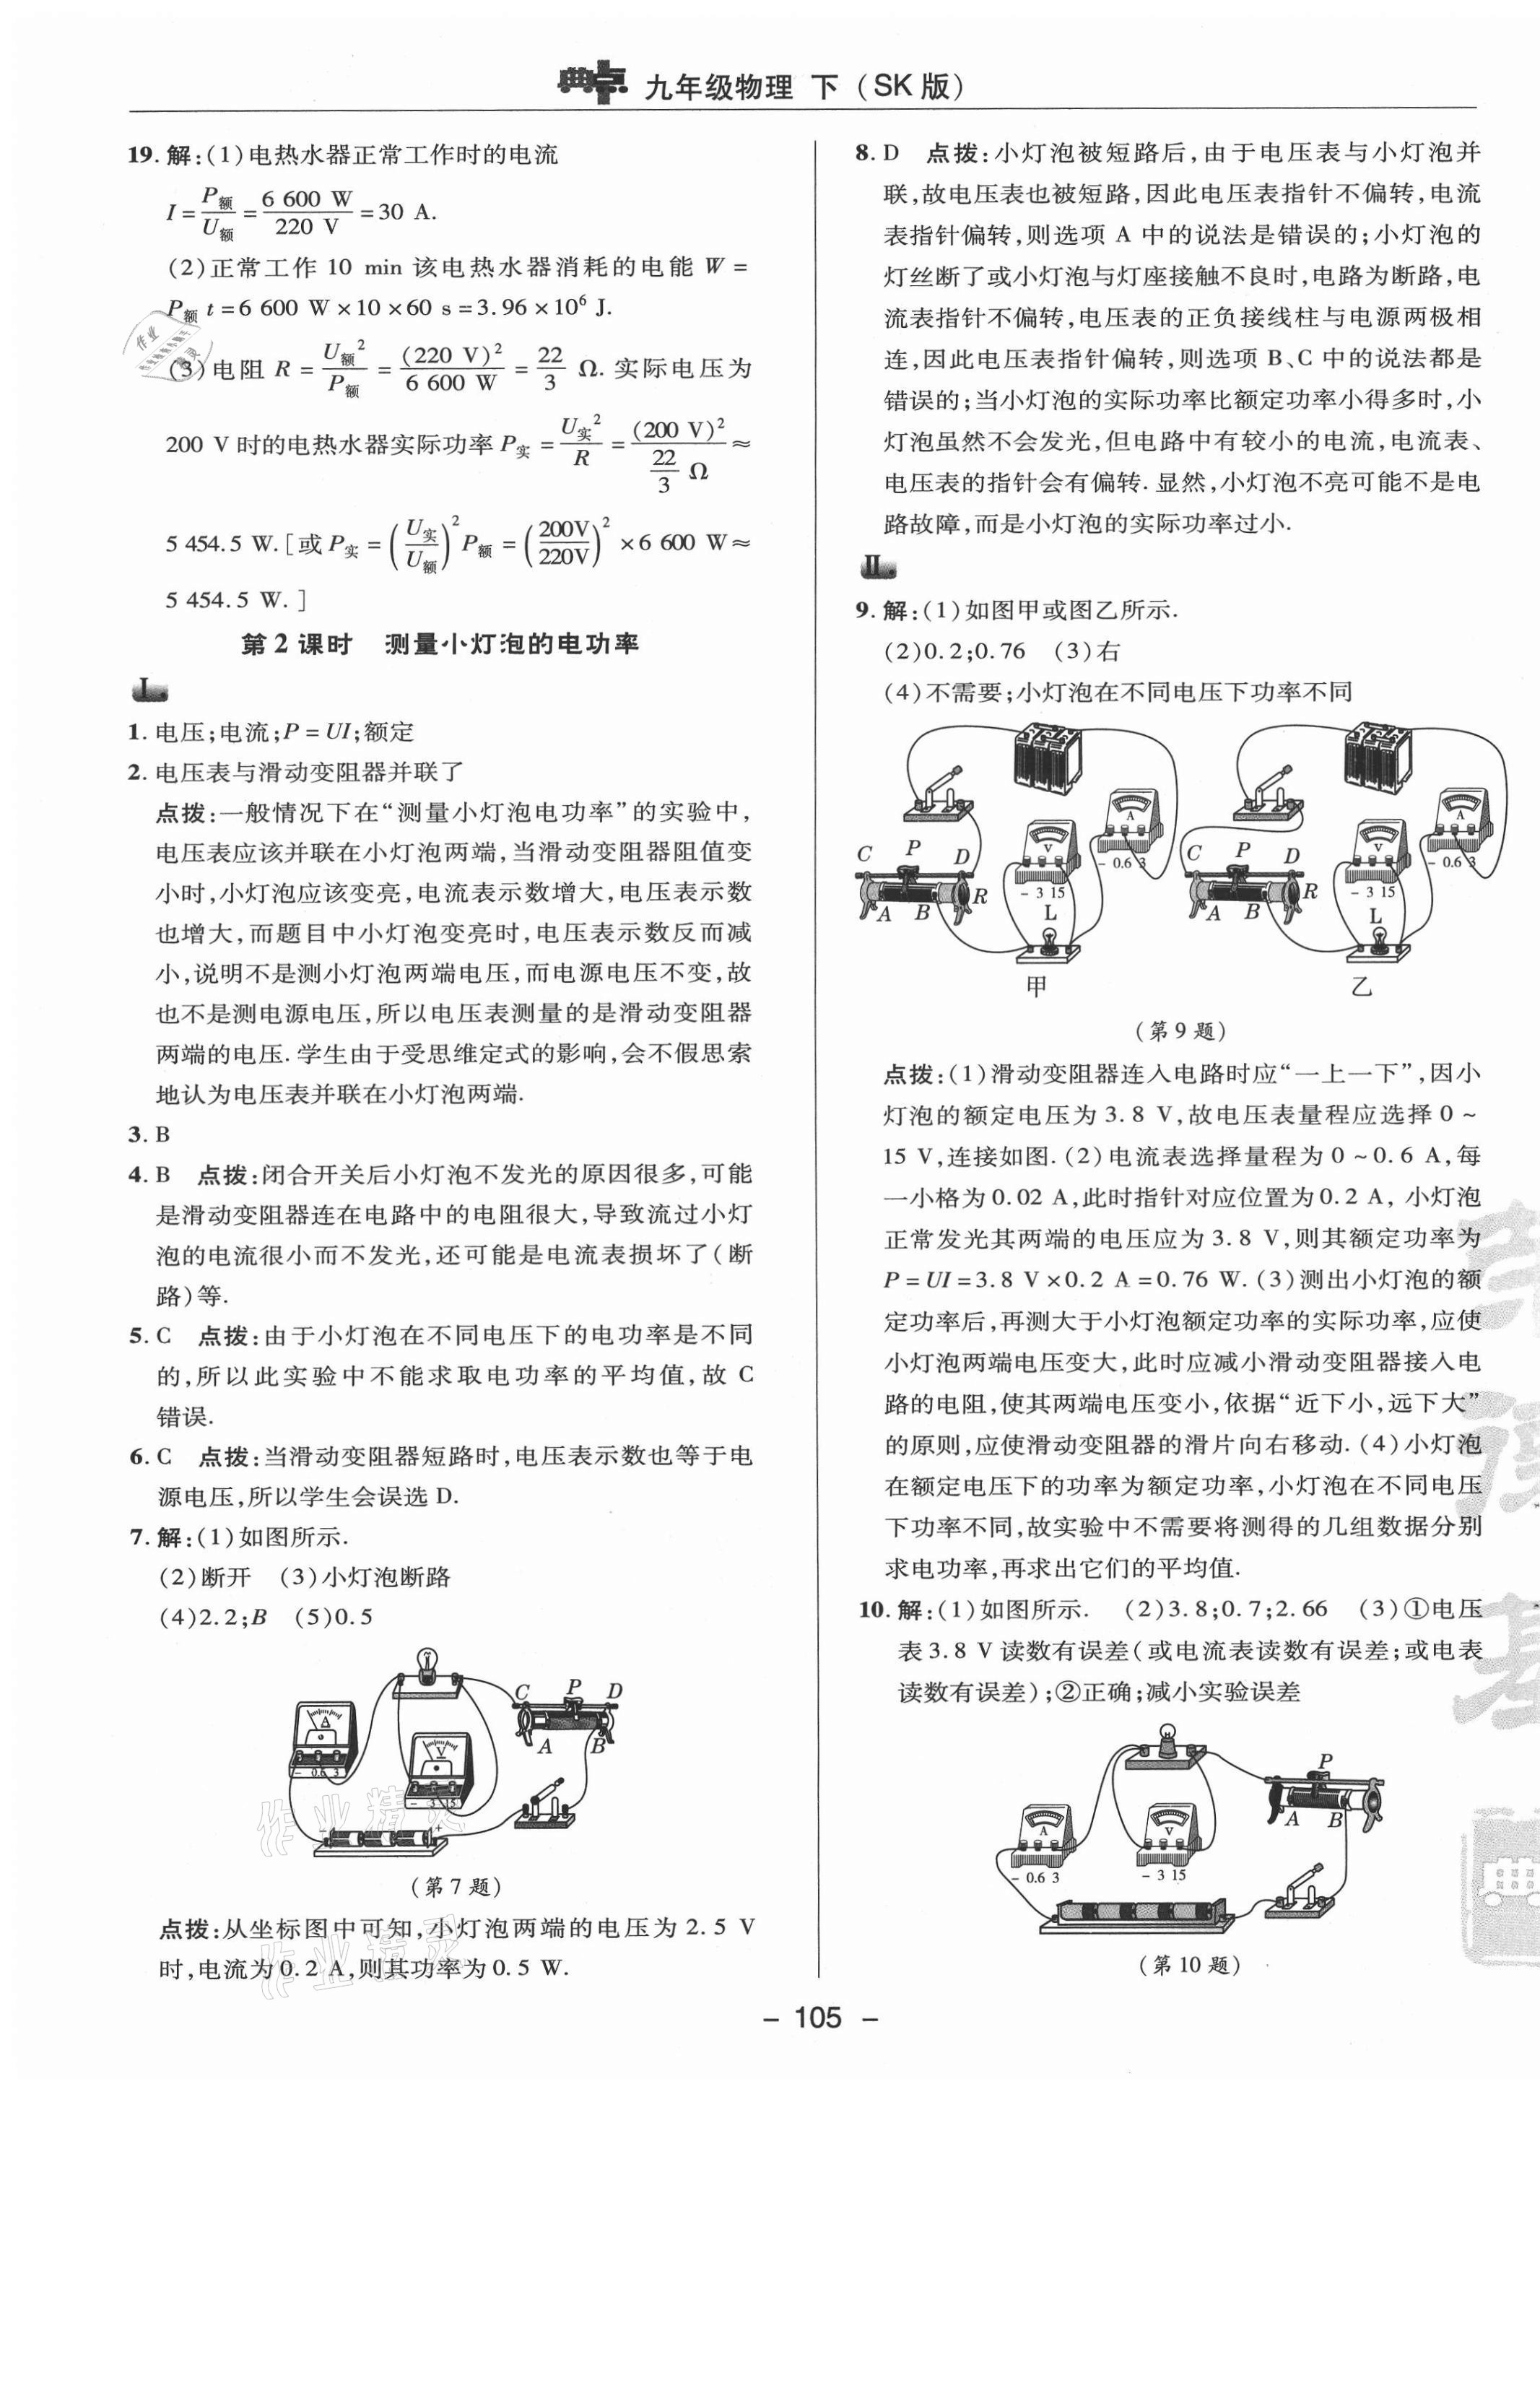 典点 九年级物理 下(SK版)
19. 解:(1)电热水器正常工作时的电流
I=P额/U额=6 600 W/220 V=30 A.
(2)正常工作 10 min 该电热水器消耗的电能 W=
P额 t=6 600 W×10×60 s=3.96×10⁶ J.
(3)电阻 R=U额²/P额=(220 V)²/6 600 W=22/3 Ω. 实际电压为
200 V时的电热水器实际功率P实=U实²/R=(200 V)²/(22/3 Ω)≈
5 454.5 W.[或P实=(U实/U额)²P额=(200V/220V)²×6 600 W≈
5 454.5 W.]
第2课时 测量小灯泡的电功率
Ⅰ.
1. 电压;电流;P=UI;额定
2. 电压表与滑动变阻器并联了
点拨:一般情况下在“测量小灯泡电功率”的实验中,
电压表应该并联在小灯泡两端,当滑动变阻器阻值变
小时,小灯泡应该变亮,电流表示数增大,电压表示数
也增大,而题目中小灯泡变亮时,电压表示数反而减
小,说明不是测小灯泡两端电压,而电源电压不变,故
也不是测电源电压,所以电压表测量的是滑动变阻器
两端的电压. 学生由于受思维定式的影响,会不假思索
地认为电压表并联在小灯泡两端.
3. B
4. B 点拨:闭合开关后小灯泡不发光的原因很多,可能
是滑动变阻器连在电路中的电阻很大,导致流过小灯
泡的电流很小而不发光,还可能是电流表损坏了(断
路)等.
5. C 点拨:由于小灯泡在不同电压下的电功率是不同
的,所以此实验中不能求取电功率的平均值,故 C
错误.
6. C 点拨:当滑动变阻器短路时,电压表示数也等于电
源电压,所以学生会误选 D.
7. 解:(1)如图所示.
(2)断开 (3)小灯泡断路
(4)2.2;B (5)0.5
C P D
A
A B
V
- 0.6 3
- 3 15
- +
(第7题)
点拨:从坐标图中可知,小灯泡两端的电压为 2.5 V
时,电流为0.2 A,则其功率为0.5 W.
8. D 点拨:小灯泡被短路后,由于电压表与小灯泡并
联,故电压表也被短路,因此电压表指针不偏转,电流
表指针偏转,则选项 A 中的说法是错误的;小灯泡的
灯丝断了或小灯泡与灯座接触不良时,电路为断路,电
流表指针不偏转,电压表的正负接线柱与电源两极相
连,因此电压表指针偏转,则选项 B、C 中的说法都是
错误的;当小灯泡的实际功率比额定功率小得多时,小
灯泡虽然不会发光,但电路中有较小的电流,电流表、
电压表的指针会有偏转. 显然,小灯泡不亮可能不是电
路故障,而是小灯泡的实际功率过小.
Ⅱ.
9. 解:(1)如图甲或图乙所示.
(2)0.2;0.76 (3)右
(4)不需要;小灯泡在不同电压下功率不同
A A
V V
C P D - 0.6 3 C P D - 0.6 3
A B R - 3 15 A B R - 3 15
L L
甲 乙
(第9题)
点拨:(1)滑动变阻器连入电路时应“一上一下”,因小
灯泡的额定电压为 3.8 V,故电压表量程应选择 0~
15 V,连接如图.(2)电流表选择量程为 0~0.6 A,每
一小格为0.02 A,此时指针对应位置为0.2 A, 小灯泡
正常发光其两端的电压应为 3.8 V,则其额定功率为
P=UI=3.8 V×0.2 A=0.76 W.(3)测出小灯泡的额
定功率后,再测大于小灯泡额定功率的实际功率,应使
小灯泡两端电压变大,此时应减小滑动变阻器接入电
路的电阻,使其两端电压变小,依据“近下小,远下大”
的原则,应使滑动变阻器的滑片向右移动.(4)小灯泡
在额定电压下的功率为额定功率,小灯泡在不同电压
下功率不同,故实验中不需要将测得的几组数据分别
求电功率,再求出它们的平均值.
10. 解:(1)如图所示. (2)3.8;0.7;2.66 (3)①电压
表3.8 V读数有误差(或电流表读数有误差;或电表
读数有误差);②正确;减小实验误差
P
A B
A V
- 0.6 3 - 3 15
(第10题)
- 105 -
作业精灵
作业精灵
典